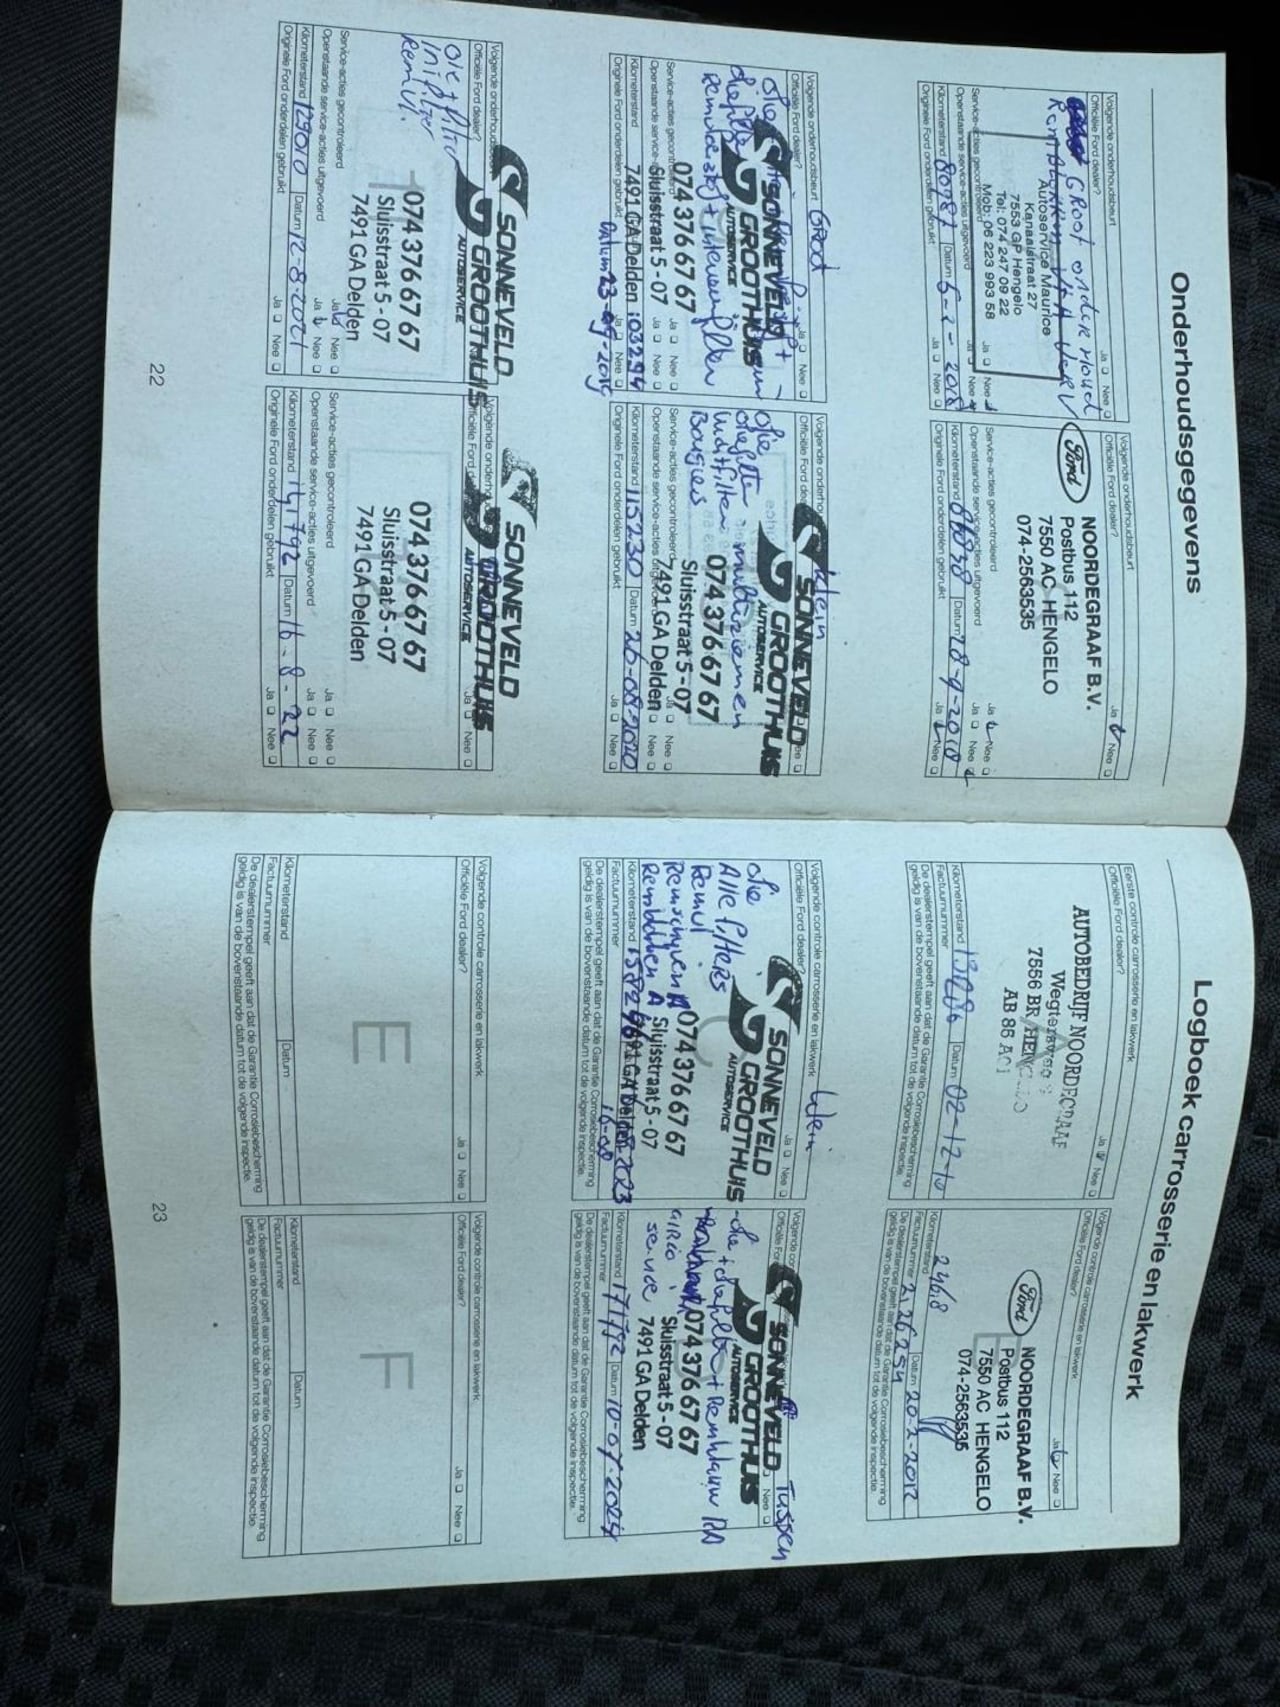 Onderhoudsgegevens
Volgende onderhoudsbeurt
Officiële Ford dealer? Ja Nee
GROOT onderHoud
Autoservice Maurice
Kanaalstraat 27
7553 GP Hengelo
Tel: 074 247 09 22
Mob: 06 223 993 58
Service-acties gecontroleerd Ja Nee
Openstaande service-acties uitgevoerd Ja Nee
Kilometerstand Datum
Originele Ford onderdelen gebruikt Ja Nee
Volgende onderhoudsbeurt
Ja Nee
Ford
NOORDEGRAAF B.V.
Postbus 112
7550 AC HENGELO
074-2563535
Service-acties gecontroleerd Ja Nee
Openstaande service-acties uitgevoerd Ja Nee
Kilometerstand Datum 28-9-2018
Originele Ford onderdelen gebruikt Ja Nee
Volgende onderhoudsbeurt Groot
Officiële Ford dealer? Ja Nee
SONNEVELD
GROOTHUIS
AUTOSERVICE
074 376 67 67
Sluisstraat 5 - 07
7491 GA Delden
Service-acties gecontroleerd Ja Nee
Openstaande service- Ja Nee
Kilometerstand 103294
Originele Ford onderdelen gebruikt Ja Nee
Datum
Volgende onderho Klein
Officiële Ford dea Nee
olie
oliefilter
luchtfilter multiriemen
Bougies
SONNEVELD
GROOTHUIS
AUTOSERVICE
074 376 67 67
Sluisstraat 5 - 07
7491 GA Delden
Service-acties gecontroleerd Ja Nee
Openstaande service-acties uitgevoerd Nee
Kilometerstand 115230 Datum 26-08-2020
Originele Ford onderdelen gebruikt Ja Nee
Volgende onderhoudsbeurt
Officiële Ford dealer?
Olie+filter
infilter
Remvl.
SONNEVELD
GROOTHUIS
AUTOSERVICE
074 376 67 67
Sluisstraat 5 - 07
7491 GA Delden
Service-acties gecontroleerd Ja Nee
Openstaande service-acties uitgevoerd Ja Nee
Kilometerstand 125010 Datum 12-8-2021
Originele Ford onderdelen gebruikt Ja Nee
Volgende onderho
Officiële Ford d Ja Nee
SONNEVELD
GROOTHUIS
AUTOSERVICE
074 376 67 67
Sluisstraat 5 - 07
7491 GA Delden
Service-acties gecontroleerd Ja Nee
Openstaande service-acties uitgevoerd Ja Nee
Kilometerstand 141792 Datum 16-8-22
Originele Ford onderdelen gebruikt Ja Nee
22
Logboek carrosserie en lakwerk
Eerste controle carrosserie en lakwerk
Officiële Ford dealer? Ja Nee
A
AUTOBEDRIJF NOORDEGRAAF
7556 BR HENGELO
Kilometerstand 13286 Datum 02-12-10
Factuurnummer
De dealerstempel geeft aan dat de Garantie Corrosiebescherming
geldig is van de bovenstaande datum tot de volgende inspectie.
Volgende controle carrosserie en lakwerk
Officiële Ford dealer? Ja Nee
B
Ford
NOORDEGRAAF B.V.
Postbus 112
7550 AC HENGELO
074-2563535
Kilometerstand 24618
Factuurnummer 2126254 Datum 20-2-2012
De dealerstempel geeft aan dat de Garantie Corrosiebescherming
geldig is van de bovenstaande datum tot de volgende inspectie.
Volgende controle carrosserie en lakwerk Klein
Officiële Ford dealer? Ja Nee
C
olie
Alle filters
Remvl
SONNEVELD
GROOTHUIS
AUTOSERVICE
074 376 67 67
Sluisstraat 5 - 07
7491 GA Delden
Kilometerstand
Factuurnummer 16-08 2023
De dealerstempel geeft aan dat de Garantie Corrosiebescherming
geldig is van de bovenstaande datum tot de volgende inspectie.
Volgende con Tussen
Officiële For Nee
olie + oliefilter + Remklauw RA
AIRCO
service
SONNEVELD
GROOTHUIS
AUTOSERVICE
074 376 67 67
Sluisstraat 5 - 07
7491 GA Delden
Kilometerstand 171792 Datum 10-07-2024
Factuurnummer
De dealerstempel geeft aan dat de Garantie Corrosiebescherming
geldig is van de bovenstaande datum tot de volgende inspectie.
Volgende controle carrosserie en lakwerk
Officiële Ford dealer? Ja Nee
E
Kilometerstand Datum
Factuurnummer
De dealerstempel geeft aan dat de Garantie Corrosiebescherming
geldig is van de bovenstaande datum tot de volgende inspectie.
Volgende controle carrosserie en lakwerk
Officiële Ford dealer? Ja Nee
F
Kilometerstand Datum
Factuurnummer
De dealerstempel geeft aan dat de Garantie Corrosiebescherming
geldig is van de bovenstaande datum tot de volgende inspectie.
23